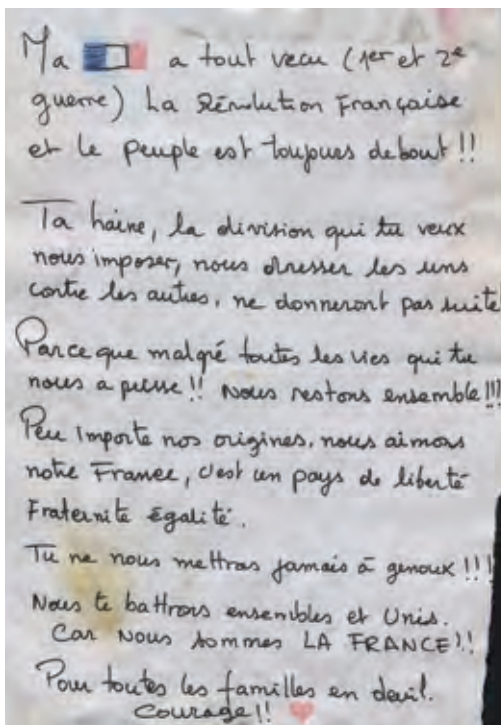 Ma a tout vecu (1er et 2e
guerre) La Révolution Française
et le peuple est toujours debout !!
Ta haine, la division qui tu veux
nous imposer, nous dresser les uns
contre les autres, ne donneront pas suite
Parce que malgré toutes les vies qui tu
nous a pusse !! Nous restons ensemble !!!
Peu importe nos origines, nous aimons
notre France, c'est un pays de liberté
Fraternité égalité.
Tu ne nous mettras jamais à genoux !!!
Nous te battrons ensembles et Unis.
Car Nous sommes LA FRANCE !!
Pour toutes les familles en deuil.
Courage !!